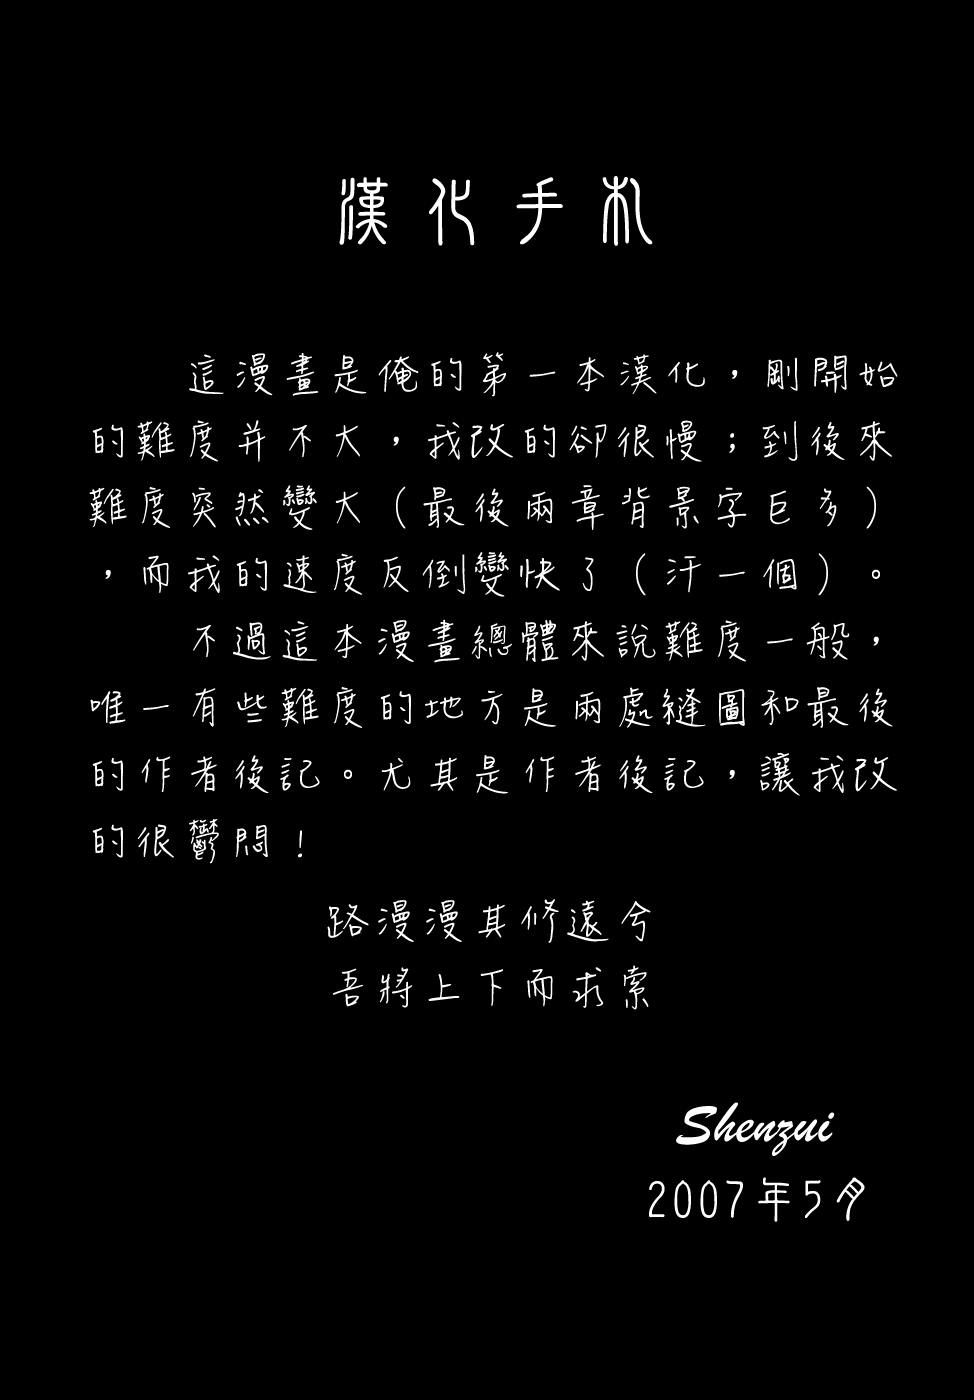 漢化手札
這漫畫是俺的第一本漢化，剛開始
的難度并不大，我改的卻很慢；到後來
難度突然變大（最後兩章背景字巨多）
，而我的速度反倒變快了（汗一個）。
不過這本漫畫總體來說難度一般，
唯一有些難度的地方是兩處縫圖和最後
的作者後記。尤其是作者後記，讓我改
的很鬱悶！
路漫漫其修遠兮
吾將上下而求索
Shenzui
2007年5月